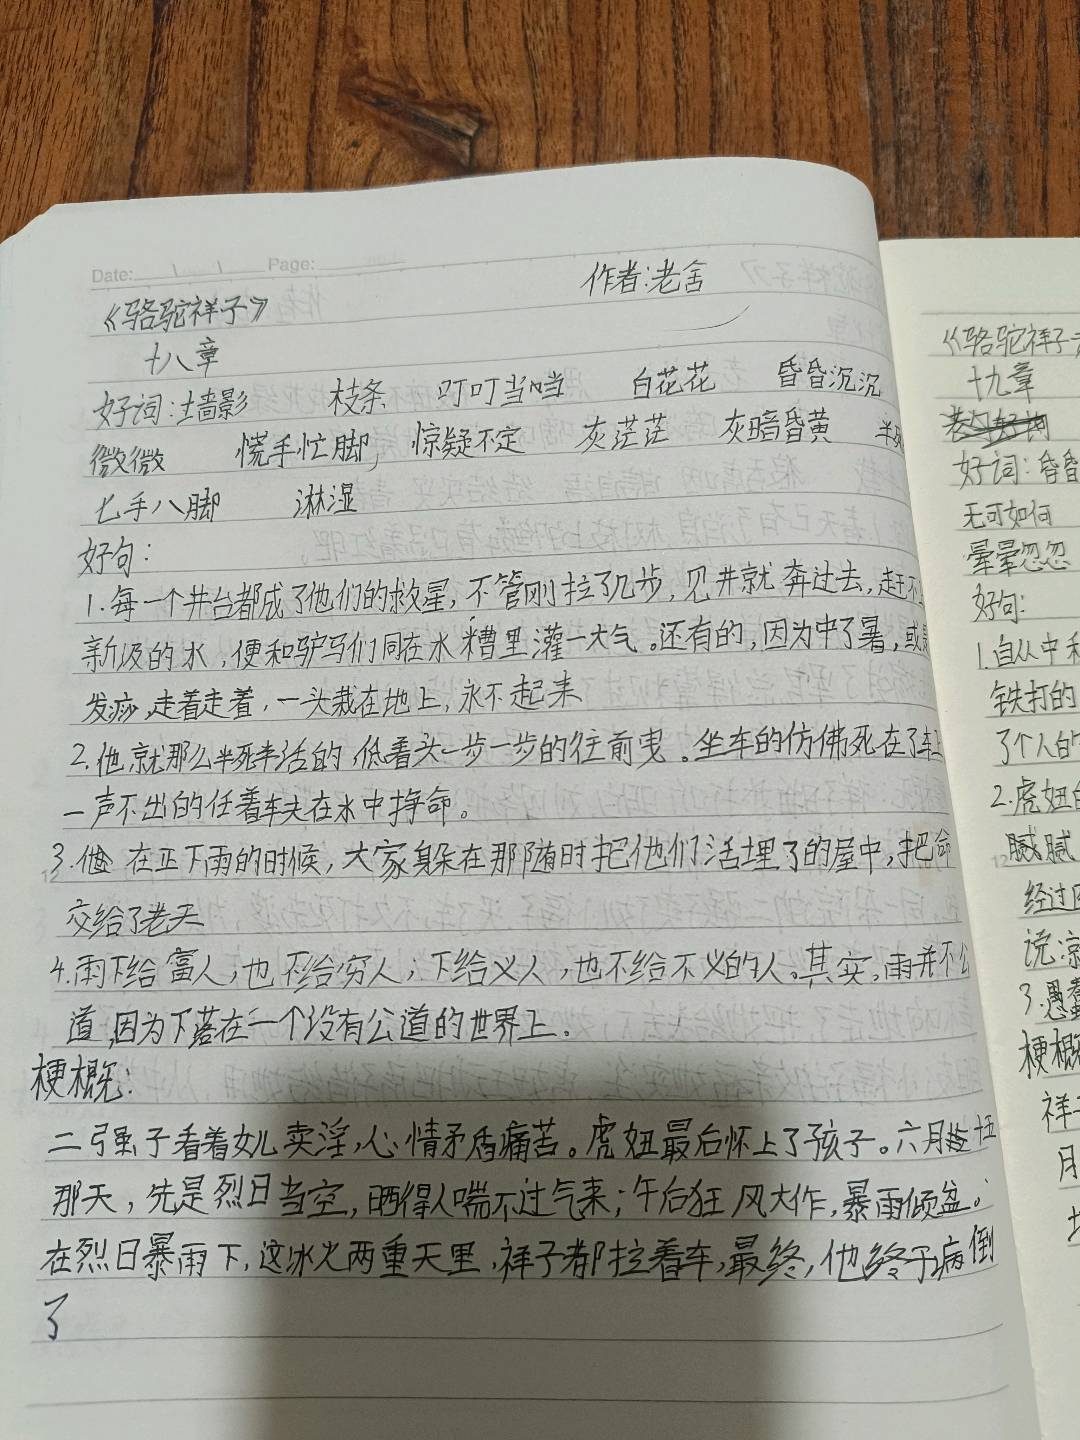 Date: Page:
《骆驼祥子》 作者:老舍
十八章
好词:墙影 枝条 叮叮当当 白花花 昏昏沉沉
微微 慌手忙脚, 惊疑不定 灰茫茫 灰暗昏黄 半死
七手八脚 淋湿
好句:
1.每一个井台都成了他们的救星,不管刚拉了几步,见井就奔过去,赶不
新汲的水,便和驴马们同在水糟里灌一大气。还有的,因为中了暑,或是
发痧,走着走着,一头栽在地上,永不起来
2.他就那么半死半活的,低着头一步一步的往前曳。坐车的仿佛死在了车上
一声不出的任着车夫在水中挣命。
3. 在正下雨的时候,大家躲在那随时把他们活埋了的屋中,把命
交给了老天
4.雨下给富人,也下给穷人;下给义人,也不给不义的人。其实,雨并不公
道,因为下落在一个没有公道的世界上。
梗概:
二强子看着女儿卖淫,心情矛盾痛苦。虎妞最后怀上了孩子。六月十五
那天,先是烈日当空,晒得人喘不过气来;午后狂风大作,暴雨倾盆。
在烈日暴雨下,这冰火两重天里,祥子都拉着车,最终,他终于病倒
了
《骆驼祥子
十九章
好词:昏昏
无可如何
晕晕忽忽
好句:
1.自从中
铁打的
了个人的
2.虎妞的
腻腻
经过
说:
3.愚蠢
梗概
祥子
月